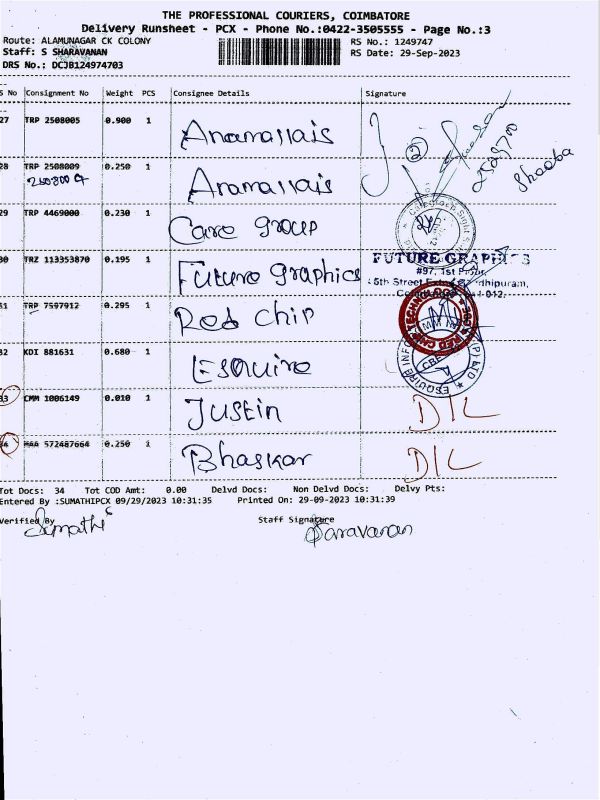 THE PROFESSIONAL COURIERS, COIMBATORE
Delivery Runsheet - PCX - Phone No.:0422-3505555 - Page No.:3
Route: ALAMUNAGAR CK COLONY RS No.: 1249747
Staff: S SHARAVANAN RS Date: 29-Sep-2023
DRS No.: DCJB124974703
S No Consignment No Weight PCS Consignee Details Signature
27 TRP 2508005 0.900 1 Anamallais
28 TRP 2508009 0.250 1 Anamallais
29 TRP 4469000 0.230 1 Care group
30 TRZ 113353870 0.195 1 Future graphics
FUTURE GRAPHICS
#97, 1st Floor,
31 TRP 7597912 0.295 1 Red Chip
32 KDI 881631 0.680 1 Esquire
33 CMM 1006149 0.010 1 Justin D/L
34 MAA 572487664 0.250 1 Bhaskar D/L
Tot Docs: 34 Tot COD Amt: 0.00 Delvd Docs: Non Delvd Docs: Delvy Pts:
Entered By :SUMATHIPCX 09/29/2023 10:31:35 Printed On: 29-09-2023 10:31:39
Verified By Staff Signature
Sumathi Saravanan